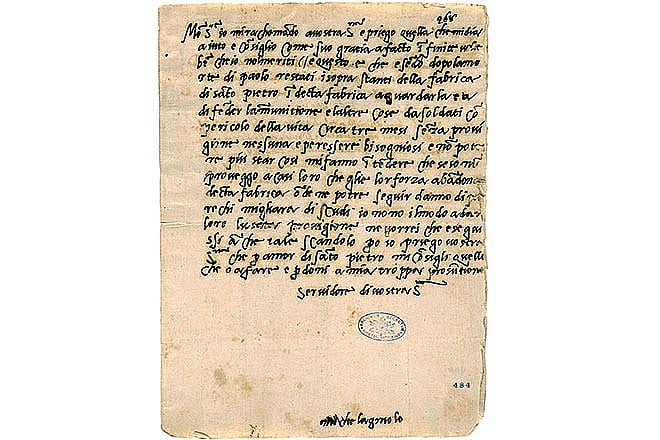 268
Mo S.re io mirachomado avostra S.ria e priego quella che midia
aiuto e co siglio come suo gratia afatto i finite volte
be che io nolmeriti e questo e che ese do dopolamo
rte di paolo restati isopra stanti della fabrica
di sa to pietro i decta fabrica aguardarla e a
difeder lamunitione elaltre cose dasoldati co
pericolo della vita circa tre mesi se za provi
gione nessuna e peressere bisogniosi e no pote
re piu star cosi mifanno i te dere che se io no
proveggo a casi loro che glie lor forza aba dona
decta fabrica o de ne potre seguir danno di pa
rechi migliara di scudi io no no ilmodo adar
loro provigione ne vorrei che ese qui
ssi a che tale sca dolo po io priego vostra
S.ria che p amor di sa to pietro mi co sigli quella
che o afare e p doni a mia troppa prosu tione
servidore di vostra S.
484
michelagniolo